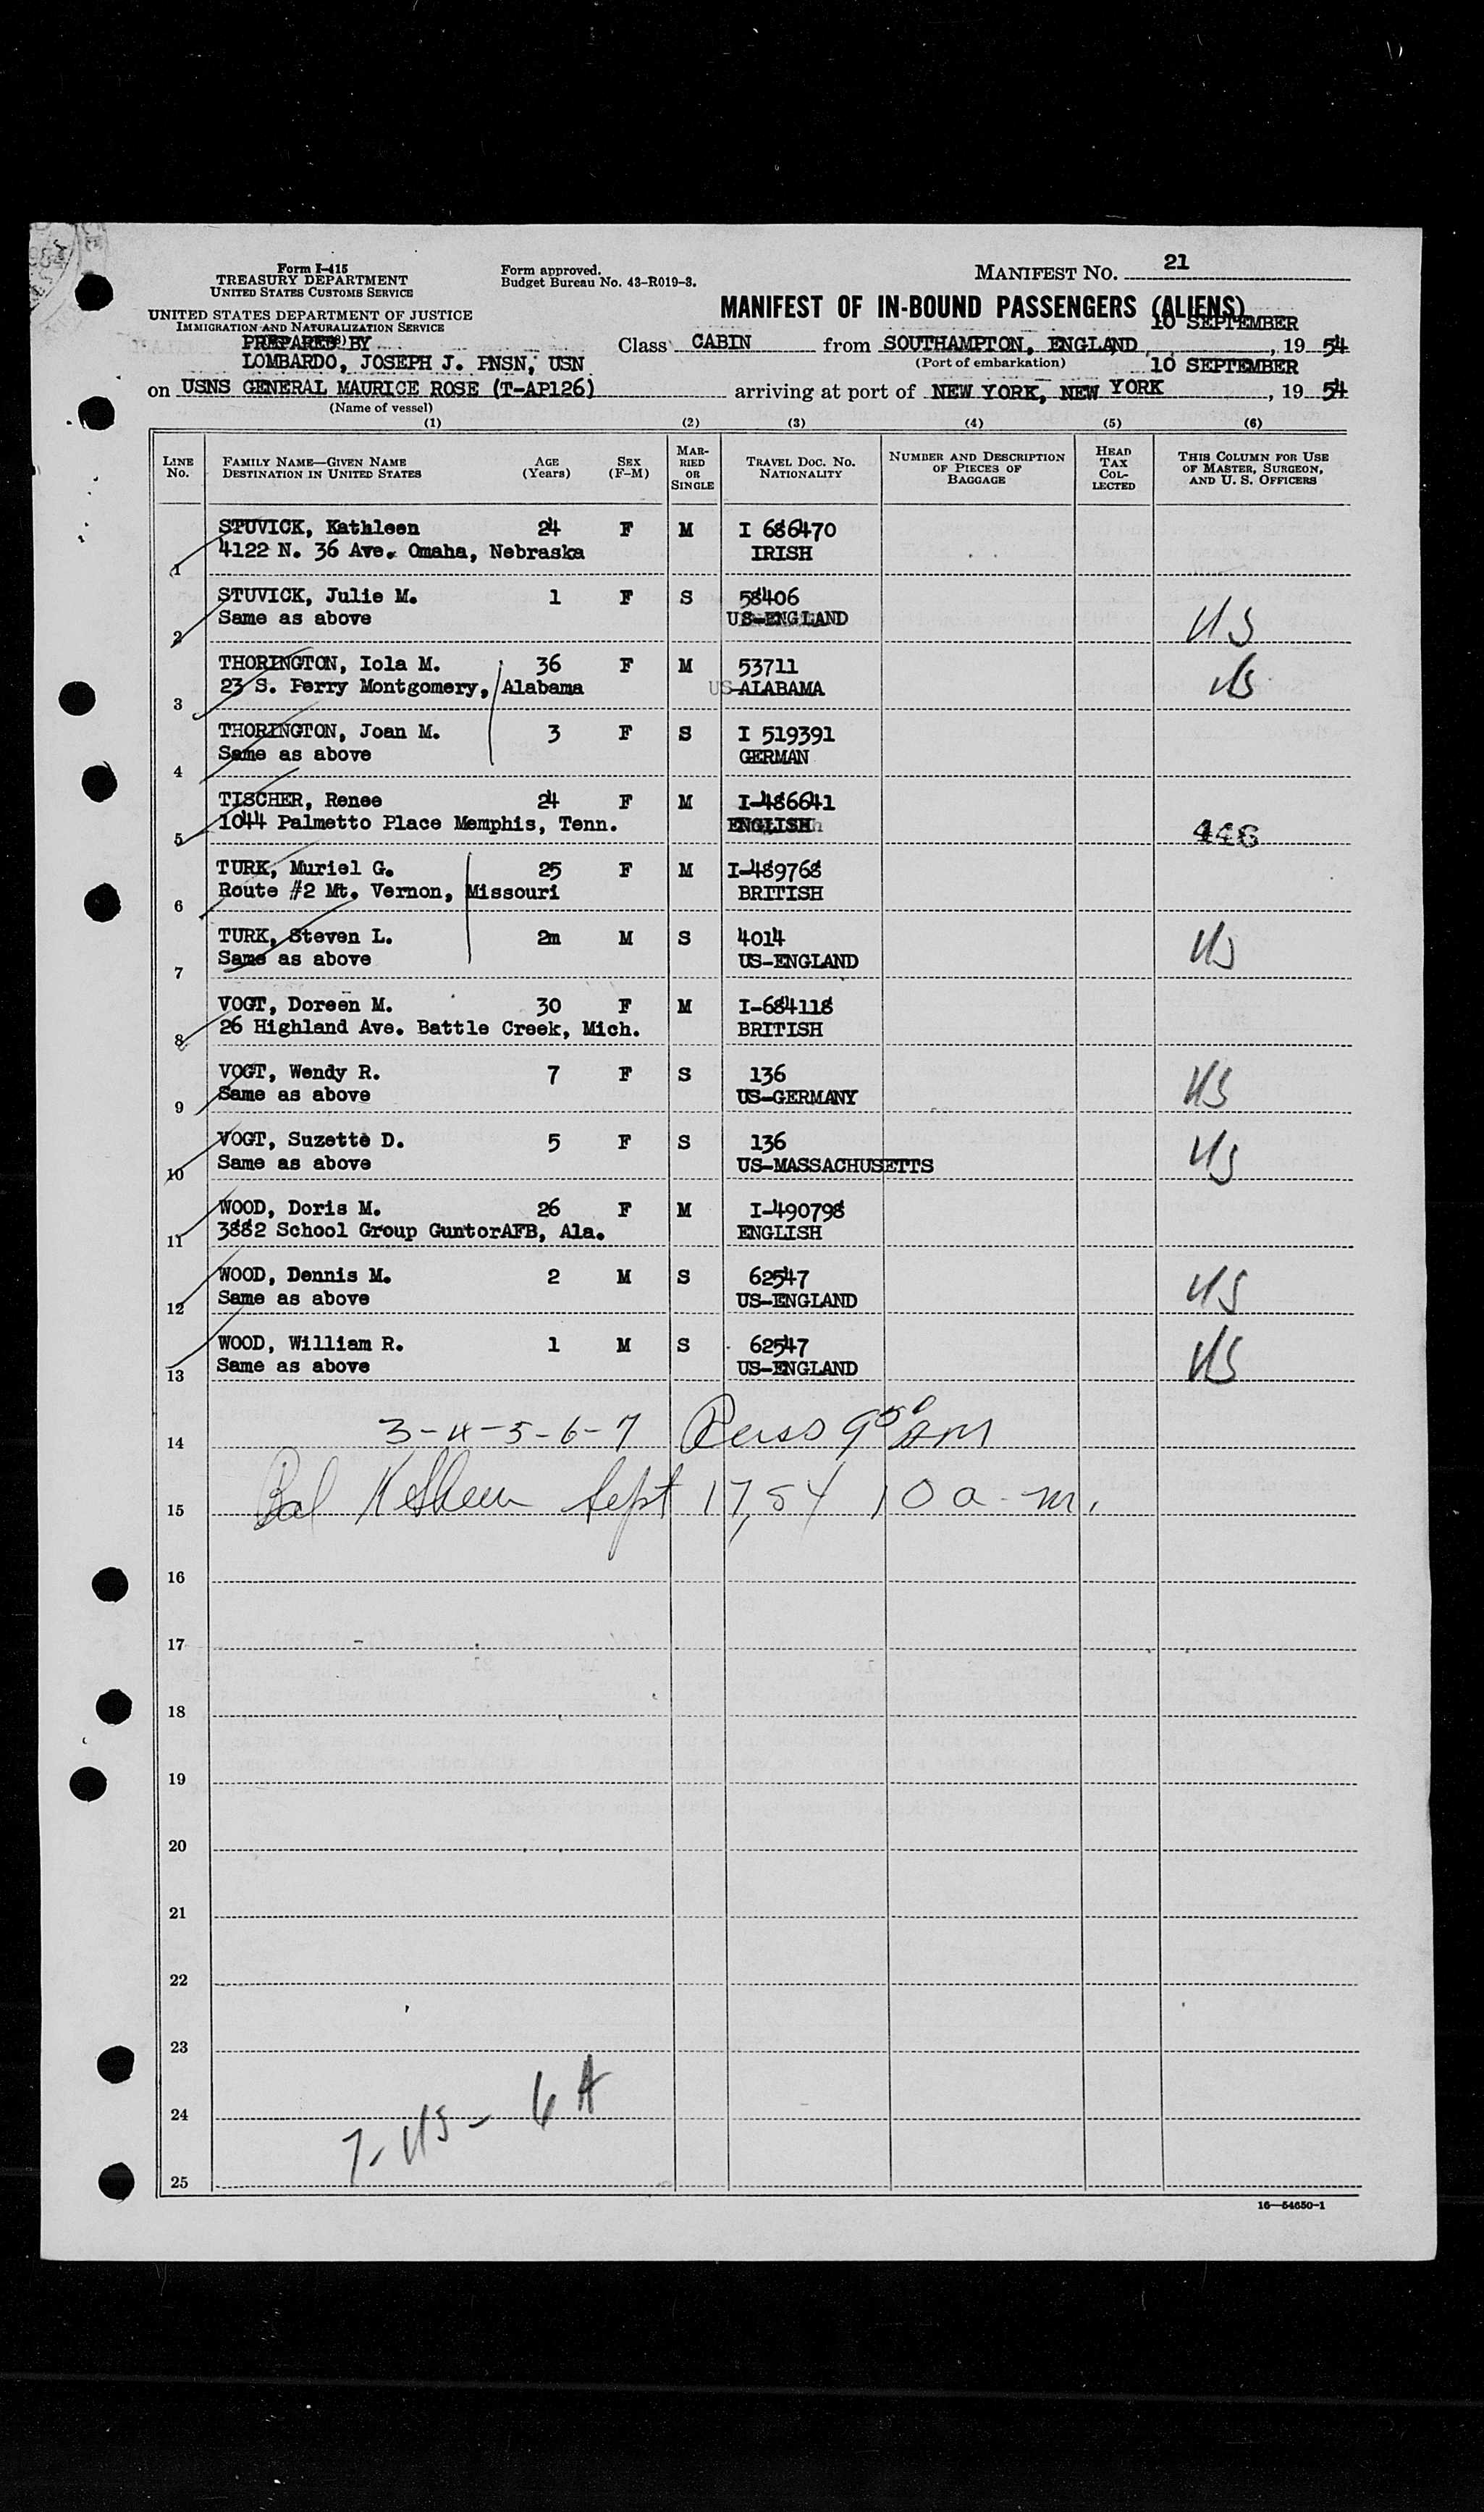 Form I-415
TREASURY DEPARTMENT
UNITED STATES CUSTOMS SERVICE
UNITED STATES DEPARTMENT OF JUSTICE
IMMIGRATION AND NATURALIZATION SERVICE
Form approved.
Budget Bureau No. 43-R019-3.
MANIFEST NO. 21
MANIFEST OF IN-BOUND PASSENGERS (ALIENS)
10 SEPTEMBER
PREPARED BY
LOMBARDO, JOSEPH J. PNSN, USN
Class CABIN from SOUTHAMPTON, ENGLAND, 19 54
(Port of embarkation)
10 SEPTEMBER
on USNS GENERAL MAURICE ROSE (T-AP126) arriving at port of NEW YORK, NEW YORK, 19 54
(Name of vessel)
(1) (2) (3) (4) (5) (6)
LINE No.
FAMILY NAME—GIVEN NAME
DESTINATION IN UNITED STATES
AGE (Years)
SEX (F-M)
MARRIED OR SINGLE
TRAVEL DOC. NO. NATIONALITY
NUMBER AND DESCRIPTION OF PIECES OF BAGGAGE
HEAD TAX COLLECTED
THIS COLUMN FOR USE OF MASTER, SURGEON, AND U. S. OFFICERS
STUVICK, Kathleen 24 F M I 686470
1 4122 N. 36 Ave. Omaha, Nebraska IRISH
STUVICK, Julie M. 1 F S 58406
2 Same as above US-ENGLAND US
THORINGTON, Iola M. 36 F M 53711
3 23 S. Perry Montgomery, Alabama US-ALABAMA US
THORINGTON, Joan M. 3 F S I 519391
4 Same as above GERMAN
TISCHER, Renee 24 F M I-486641
5 1044 Palmetto Place Memphis, Tenn. ENGLISH 446
TURK, Muriel G. 25 F M I-489768
6 Route #2 Mt. Vernon, Missouri BRITISH
TURK, Steven L. 2m M S 4014
7 Same as above US-ENGLAND US
VOGT, Doreen M. 30 F M I-684118
8 26 Highland Ave. Battle Creek, Mich. BRITISH
VOGT, Wendy R. 7 F S 136
9 Same as above US-GERMANY US
VOGT, Suzette D. 5 F S 136
10 Same as above US-MASSACHUSETTS US
WOOD, Doris M. 26 F M I-490798
11 3882 School Group GuntorAFB, Ala. ENGLISH
WOOD, Dennis M. 2 M S 62547
12 Same as above US-ENGLAND US
WOOD, William R. 1 M S 62547
13 Same as above US-ENGLAND US
14 3-4-5-6-7 9 50 AM
15 Bal Sept 17, 54 10 a.m.
16
17
18
19
20
21
22
23
24 7-US- 6A
25
16—54650-1